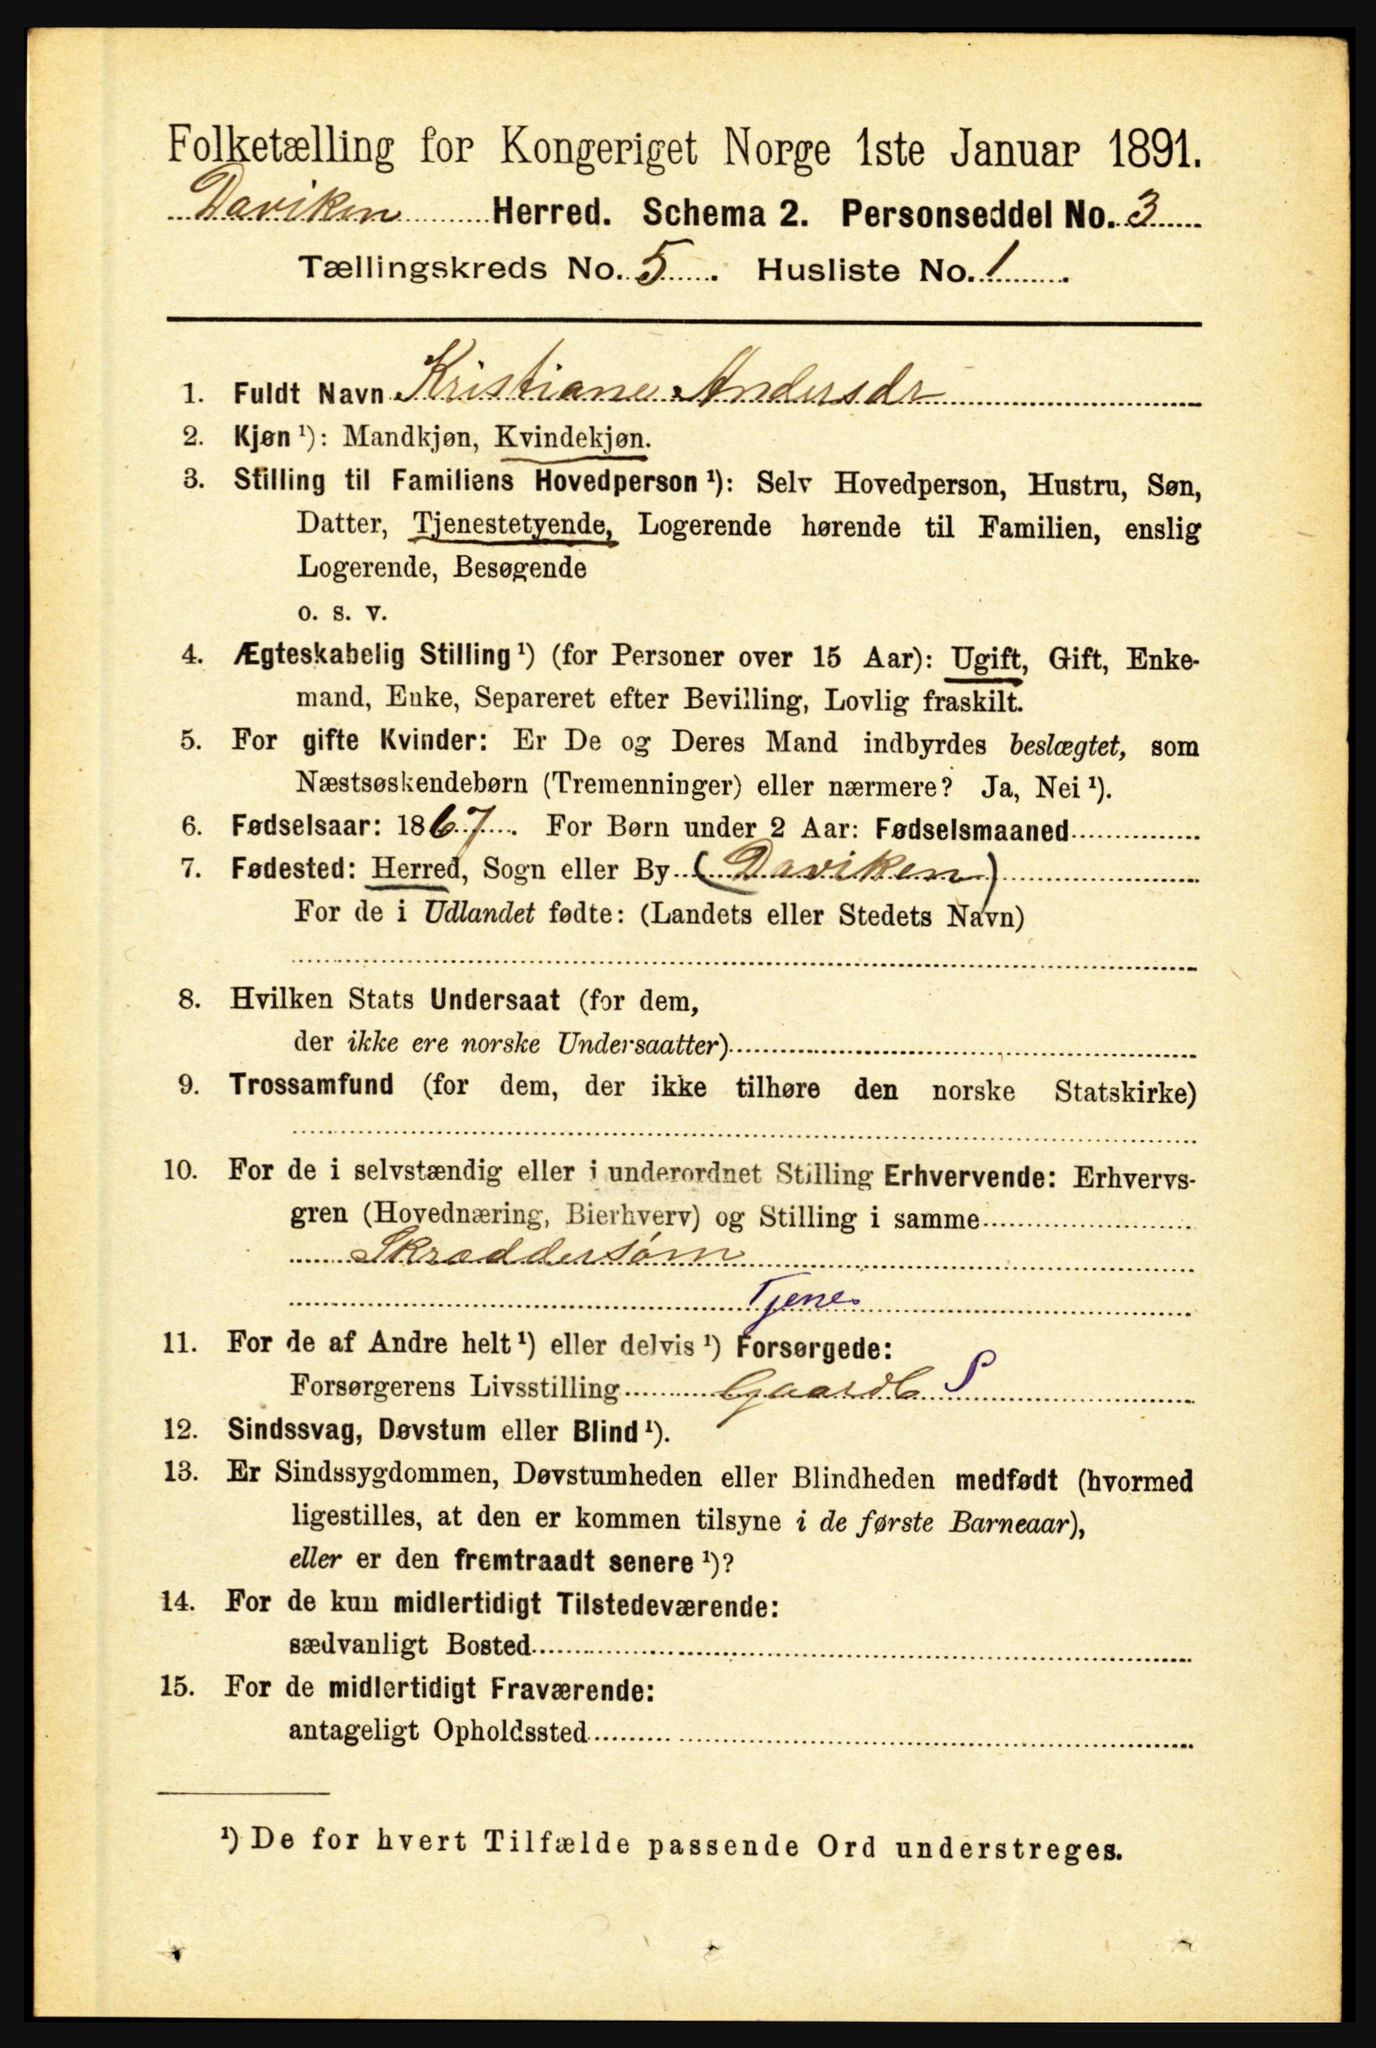 Folketælling for Kongeriget Norge 1ste Januar 1891.
Daviken Herred. Schema 2. Personseddel No. 3
Tællingskreds No. 5. Husliste No. 1.
1. Fuldt Navn Kristiane Andersdr
2. Kjøn ¹): Mandkjøn, Kvindekjøn.
3. Stilling til Familiens Hovedperson ¹): Selv Hovedperson, Hustru, Søn,
Datter, Tjenestetyende, Logerende hørende til Familien, enslig
Logerende, Besøgende
o. s. v.
4. Ægteskabelig Stilling ¹) (for Personer over 15 Aar): Ugift, Gift, Enke-
mand, Enke, Separeret efter Bevilling, Lovlig fraskilt.
5. For gifte Kvinder: Er De og Deres Mand indbyrdes beslægtet, som
Næstsøskendebørn (Tremenninger) eller nærmere? Ja, Nei ¹).
6. Fødselsaar: 1867. For Børn under 2 Aar: Fødselsmaaned
7. Fødested: Herred, Sogn eller By (Daviken)
For de i Udlandet fødte: (Landets eller Stedets Navn)
8. Hvilken Stats Undersaat (for dem,
der ikke ere norske Undersaatter)
9. Trossamfund (for dem, der ikke tilhøre den norske Statskirke)
10. For de i selvstændig eller i underordnet Stilling Erhvervende: Erhvervs-
gren (Hovednæring, Bierhverv) og Stilling i samme
Skræddersøm
Tjenes
11. For de af Andre helt ¹) eller delvis ¹) Forsørgede:
Forsørgerens Livsstilling Gaardb S
12. Sindssvag, Døvstum eller Blind ¹).
13. Er Sindssygdommen, Døvstumheden eller Blindheden medfødt (hvormed
ligestilles, at den er kommen tilsyne i de første Barneaar),
eller er den fremtraadt senere ¹)?
14. For de kun midlertidigt Tilstedeværende:
sædvanligt Bosted
15. For de midlertidigt Fraværende:
antageligt Opholdssted
¹) De for hvert Tilfælde passende Ord understreges.